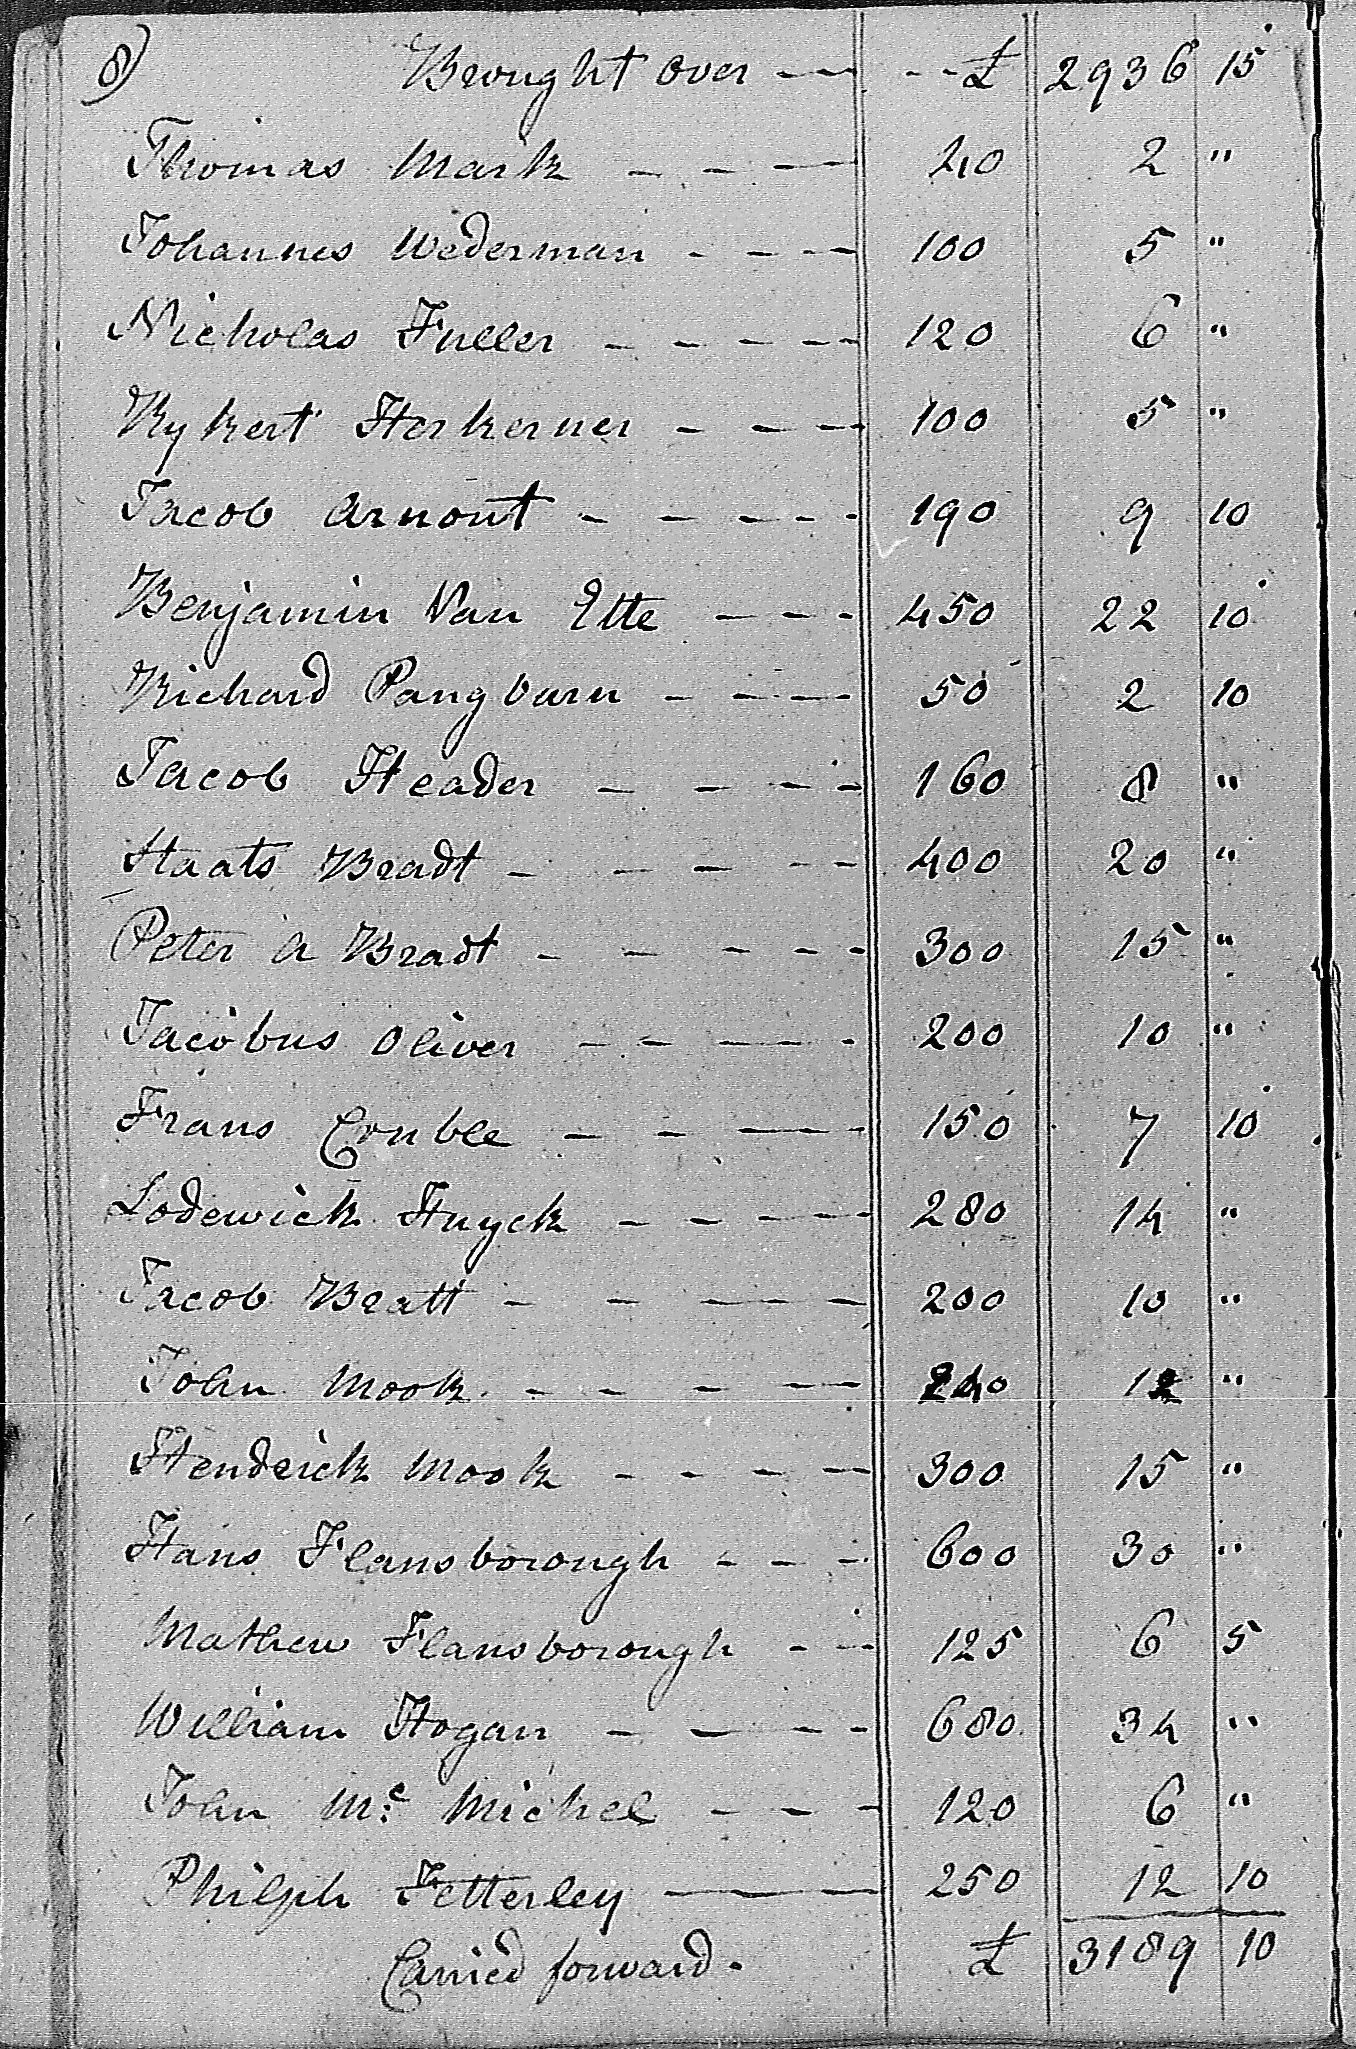 8) Brought over £ 2936 15
Thomas Mark 40 2 "
Johannes Wederman 100 5 "
Nicholas Fuller 120 6 "
Rykert Herkerner 100 5 "
Jacob Arnout 190 9 10
Benjamin Van Ette 450 22 10
Richard Pangburn 50 2 10
Jacob Header 160 8 "
Staats Bradt 400 20 "
Peter A Bradt 300 15 "
Jacobus Oliver 200 10 "
Frans Couble 150 7 10
Lodewick Huyck 280 14 "
Jacob Bratt 200 10 "
John Mook 240 12 "
Hendrick Mook 300 15 "
Hans Flansborough 600 30 "
Mathew Flansborough 125 6 5
William Hogan 680 34 "
John Mc. Michel 120 6 "
Philiph Fetterley 250 12 10
Carried forward. £ 3189 10